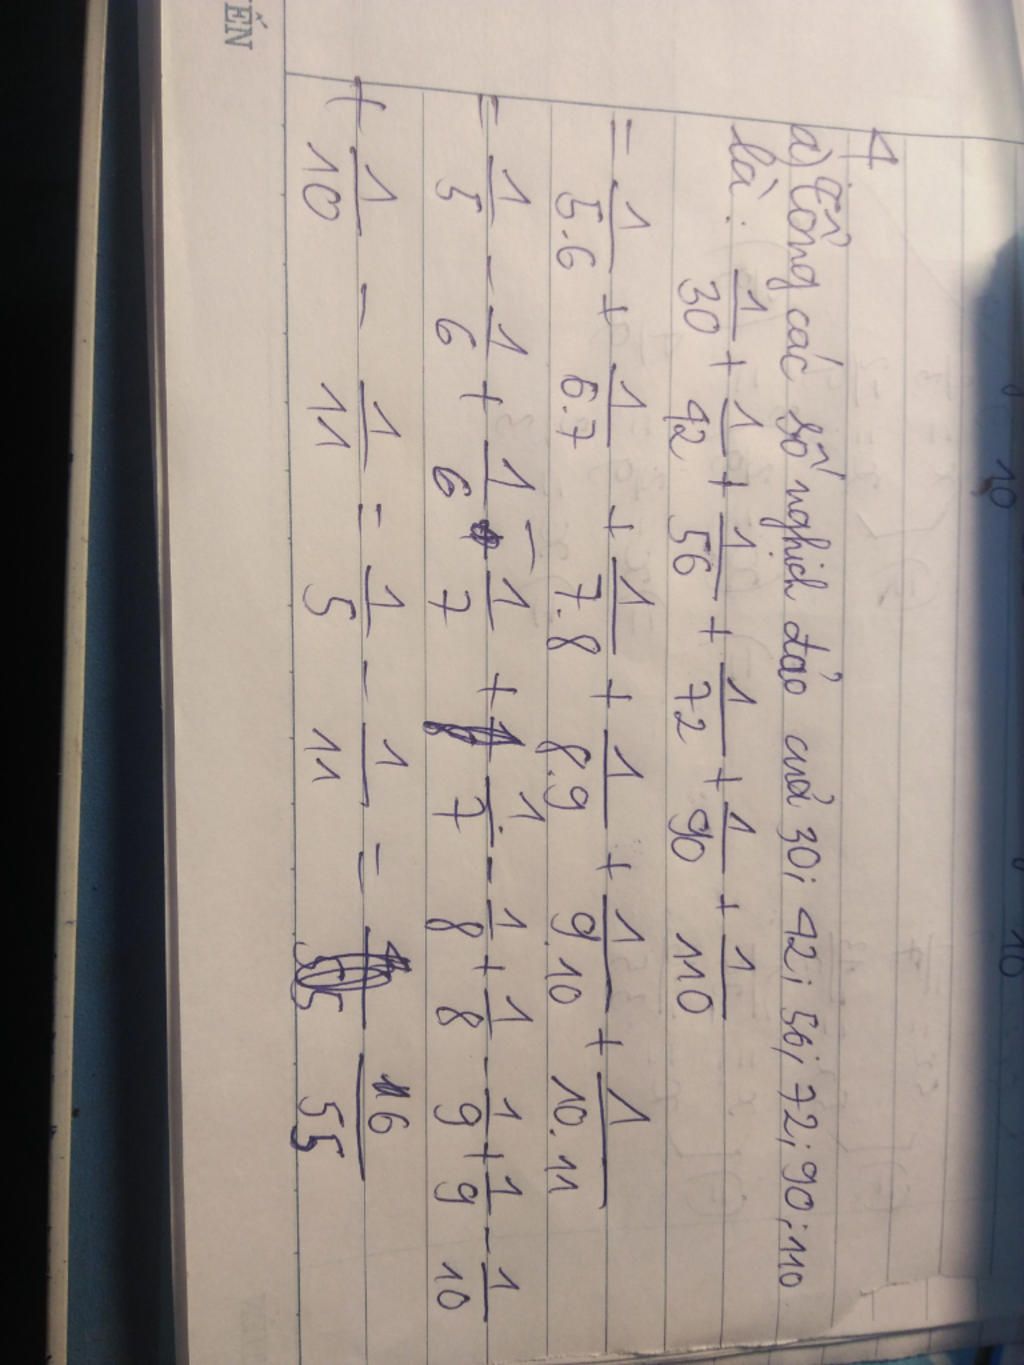 4
a) Tổng các số nghịch đảo của 30; 42; 56; 72; 90; 110
là: 1/30 + 1/42 + 1/56 + 1/72 + 1/90 + 1/110
= 1/5.6 + 1/6.7 + 1/7.8 + 1/8.9 + 1/9.10 + 1/10.11
= 1/5 - 1/6 + 1/6 - 1/7 + 1/7 - 1/8 + 1/8 - 1/9 + 1/9 - 1/10
+ 1/10 - 1/11 = 1/5 - 1/11 = 6/55
ẾN
10
10